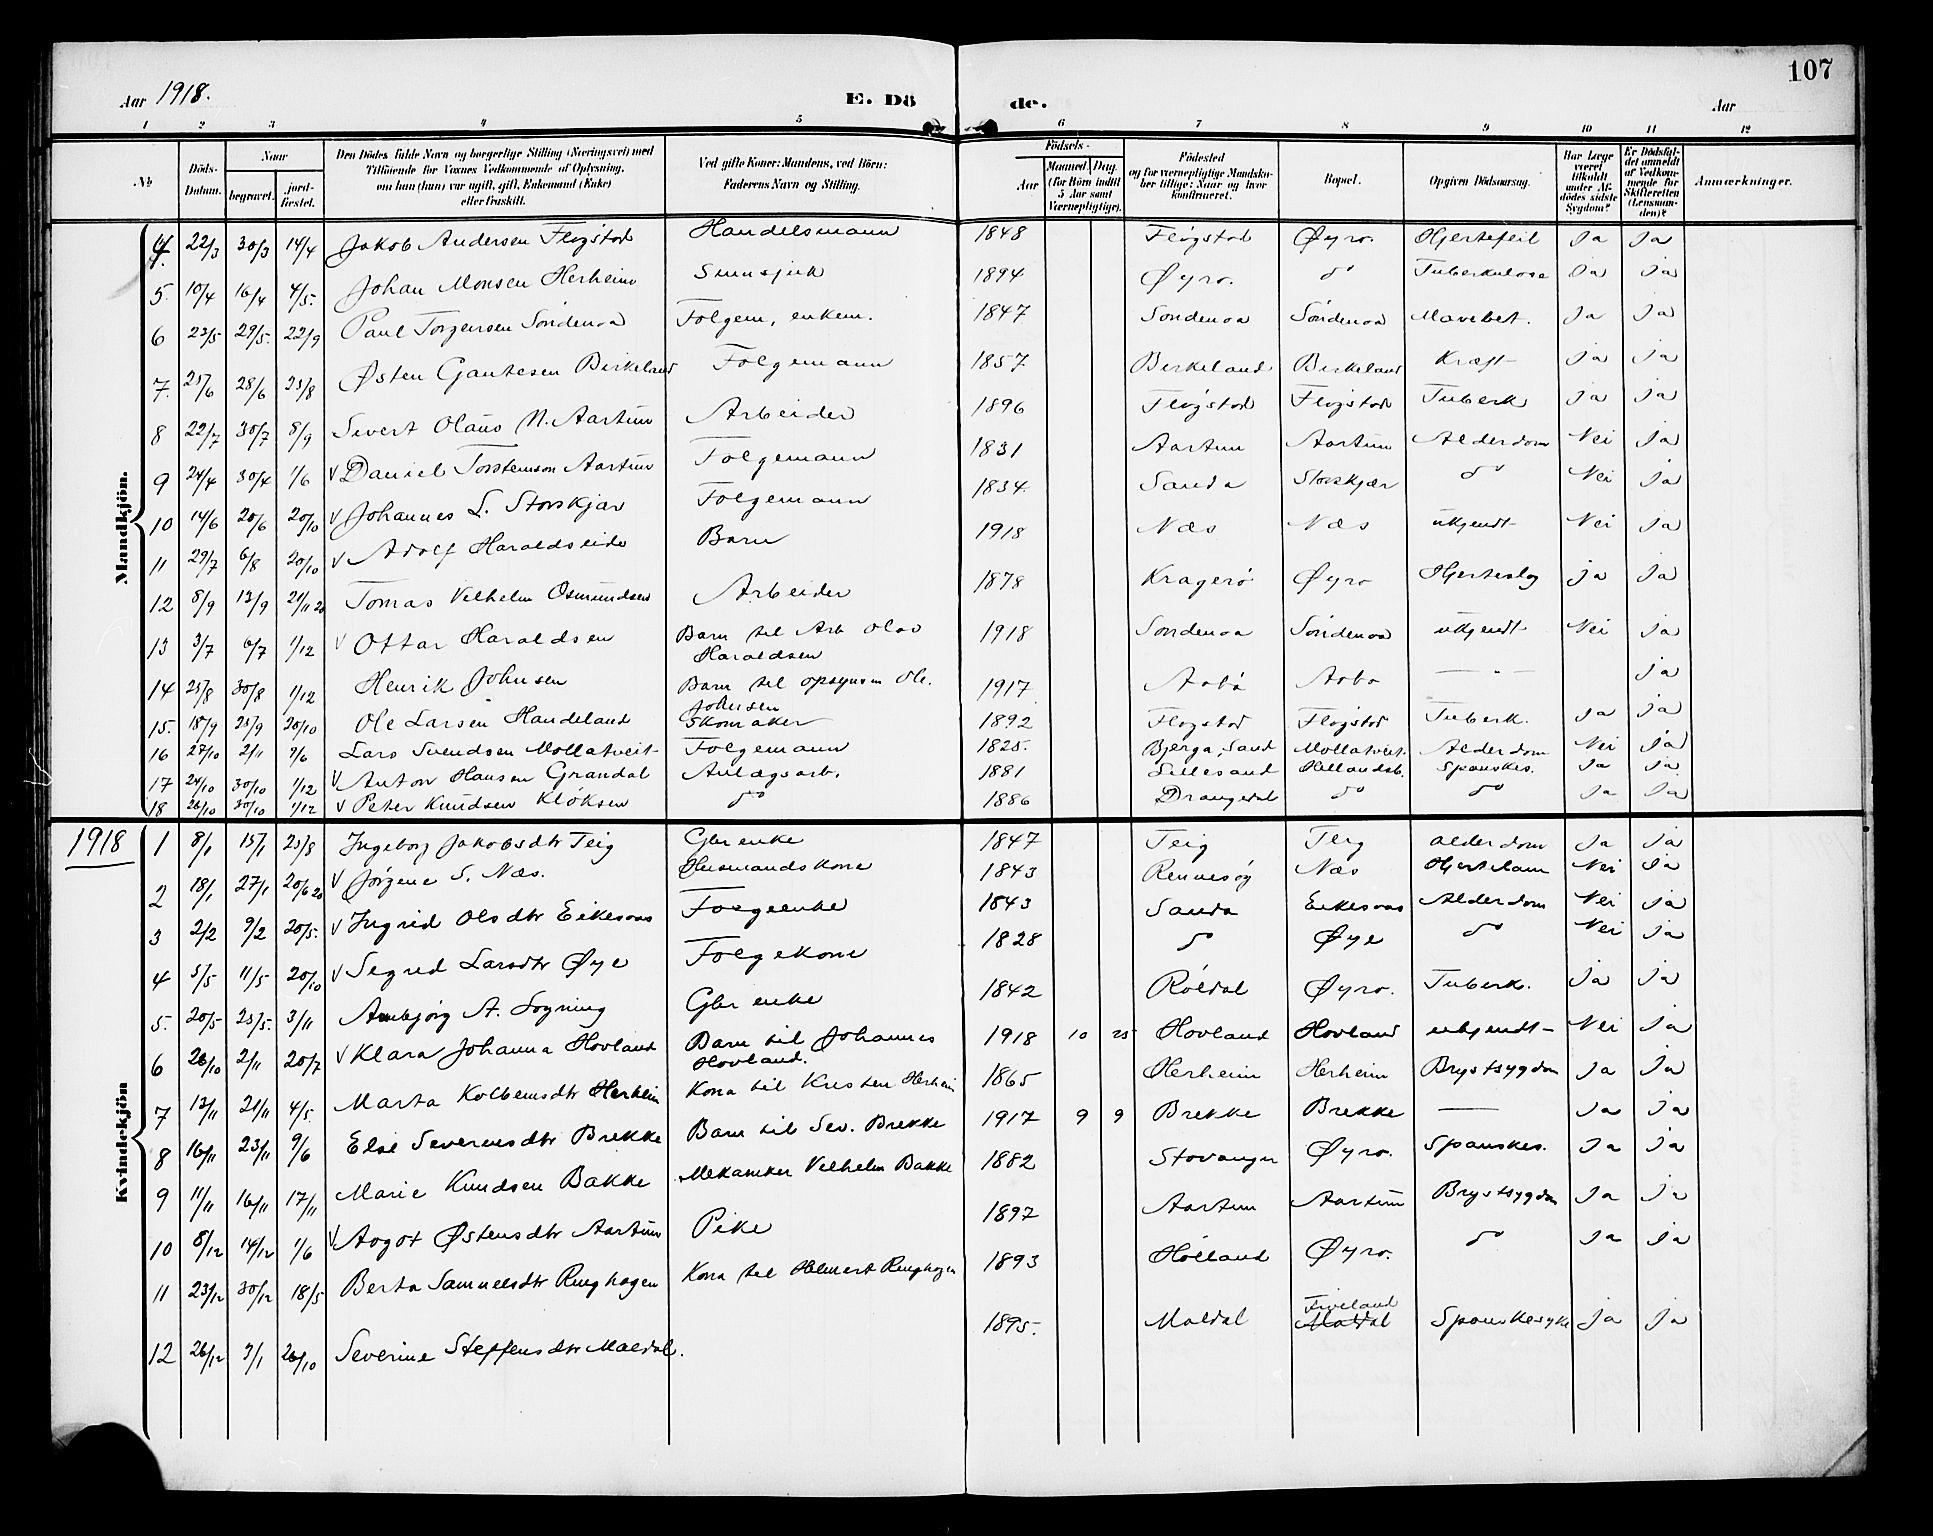 107
Aar 1918.
E. Dö de.
Aar
1 2 3 4 5 6 7 8 9 10 11 12
No
Döds-Datum.
Naar
begravet.
jord-fæstet.
Den Dödes fulde Navn og borgerlige Stilling (Næringsvei) med
Tilföiende for Voxnes Vedkommende af Oplysning,
om han (hun) var ugift, gift, Enkemand (Enke)
eller fraskilt.
Ved gifte Koner: Mandens, ved Börn:
Faderens Navn og Stilling.
Födsels-
Aar
Maaned. Dag.
(for Börn indtil
5 Aar samt
Værnepligtige).
Födested
og for værnepligtige Mandskaber tillige: Naar og hvor
konfirmeret.
Bopæl.
Opgiven Dödsaarsag.
Har Læge
været
tilkaldt
under Afdödes sidste
Sygdom?
Er Dödsfaldet anmeldt
af Vedkommende for
Skifteretten
(Lensmanden)?
Anmærkninger.
Mandkjön.
4. 22/3 30/3 14/4 Jakob Andersen Fløgstad Handelsmann 1848 Fløgstad Øyro. Hjertefeil Ja Ja
5. 10/4 16/4 4/5. Johan Monsen Herheim 1894 Øyro. do Tuberkulose Ja Ja
6 23/5 29/5. 22/9 Paul Torgersen Söndenaa Folgem, enkem. 1847 Söndenaa Söndenaa Mavebet. Ja Ja
7. 25/6 28/6 25/8 Østen Gautesen Birkeland Folgemann 1857 Birkeland Birkeland Kræft Ja Ja
8 22/7 30/7 8/9 Sivert Olaus N. Aartun Arbeider 1896 Fløgstad Fløgstad Tuberk Ja Ja
9 24/4 30/4 1/6 v Daniel Torstenson Aartun Folgemann 1831 Aartun Aartun Alderdom Nei Ja
10 14/6 20/6 20/10 v Johannes L. Storskjær Folgemann 1834. Sauda Storskjær do Nei Ja
11 29/7 6/8 20/10 v Adolf Haraldseide Barn 1918 Næs Næs ukjendt Nei Ja
12 8/9 13/9 21/11 20 Tomas Vilhelm Osmundsen Arbeider 1878 Kragerö Øyro Hjerteslag ja Ja
13 3/7 6/7 1/12 v Ottar Haraldsen Barn til Arb Olav Haraldsen 1918 Söndenaa Söndenaa ukjendt Nei Ja
14 25/8 30/8 1/12 Henrik Johnsen Barn til opsynsm Ole. Johnsen 1917 Aabö Aabo — " — ja
15. 18/9 25/9 20/10 Ole Larsen Handeland Skomaker 1892 Fløgstad Fløgstad Tuberk. Ja Ja
16 27/10 2/11 9/6 Lars Svendsen Mollatveit Folgemann 1825. Bjerga, Sand Mollatveit. Alderdom Nei ja
17 24/10 30/10 1/12 v Anton Hansen Grandal Anlægsarb. 1881 Lillesand Hellandsb. Spanskes. Ja Ja
18 26/10 30/10 1/12 v Peter Knudsen Klöksen do 1886 Drangedal do do Ja Ja
1918
Kvindekjön
1 8/1 15/1 25/8 Ingeborg Jakobsdtr Teig Gbr enke 1847 Teig Teig alderdom Ja Ja
2 18/1 27/1 20/6 20 v Jørgine S. Næs. Husmandskone 1843 Rennesøy Næs Hjertelam Nei Ja
3 2/2 9/2 20/5. v Ingrid Olsdtr Eikesaas Folgeenke 1843 Sauda Eikesaas Alderdom Nei ja
4 5/5 11/5 20/10 v Segred Larsdtr Øye Folgekone 1828 do Øye do Nei ja
5. 20/5 25/5. 3/11 Ambjörg A. Sogning Gbr enke 1842 Röldal Øyro. Tuberk. Ja Ja
6 26/10 2/11 20/7 v Klara Johanna Hovland Barn til Johannes Hovland. 1918 10 25 Hovland Hovland ukjendt Nei Ja
7 13/11 21/11 4/5. Marta Kolbensdtr Herheim Kona til Kristen Herheim 1865 Herheim Herheim Brystsygdom Ja Ja
8 16/11 23/11 9/6 Else Severinsdtr Brekke Barn til Sev. Brekke 1917 9 9 Brekke Brekke — Ja Ja
9 11/11 16/11 17/11 Marie Knudsen Bakke Mekaniker Vilhelm Bakke 1882 Stavanger Øyro. Spanskes. Ja Ja
10 8/12 14/12 1/6 v Aagot Østensdtr Aartun Pike 1897 Aartun Aartun Brystsygdom Ja Ja
11 23/12 30/12 18/5 Berta Samuelsdtr Ringhagen Kona til Helmert Ringhagen 1893 Hölland Øyro. do Ja Ja
12 26/12 3/1 26/10 Severine Steffensdtr Maldal. 1895. Maldal Fiveland Maldal Spanskesyke Ja Ja